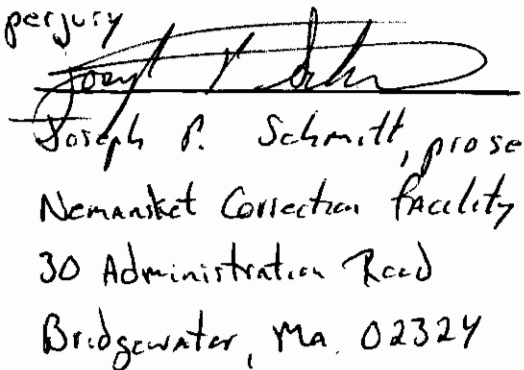 perjury
Joseph P. Schmitt, prose
Nemansket Correction facility
30 Administration Road
Bridgewater, Ma. 02324